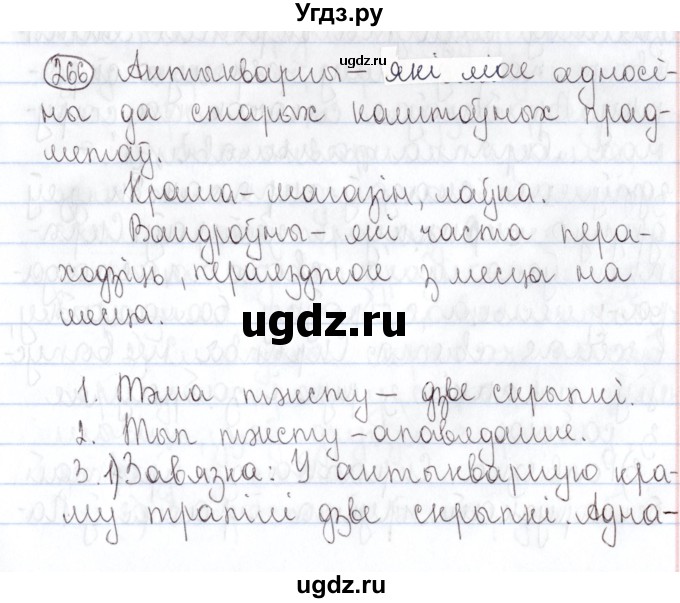 Угдз.ру
ugdz.ru
266 Антыкварны – які мае адносі-
ны да старых каштоўных прад-
метаў.
Крама – магазін, лаўка.
Вандроўны – які часта пера-
ходзіць, пераязджае з месца на
месца.
ugdz.ru
ugdz.ru
1. Тэма тэксту – дзве скрыпкі.
2. Тып тэксту – апавяданне.
3. 1) Завязка. У антыкварную кра-
му трапілі дзве скрыпкі. Адна-
ugdz.ru